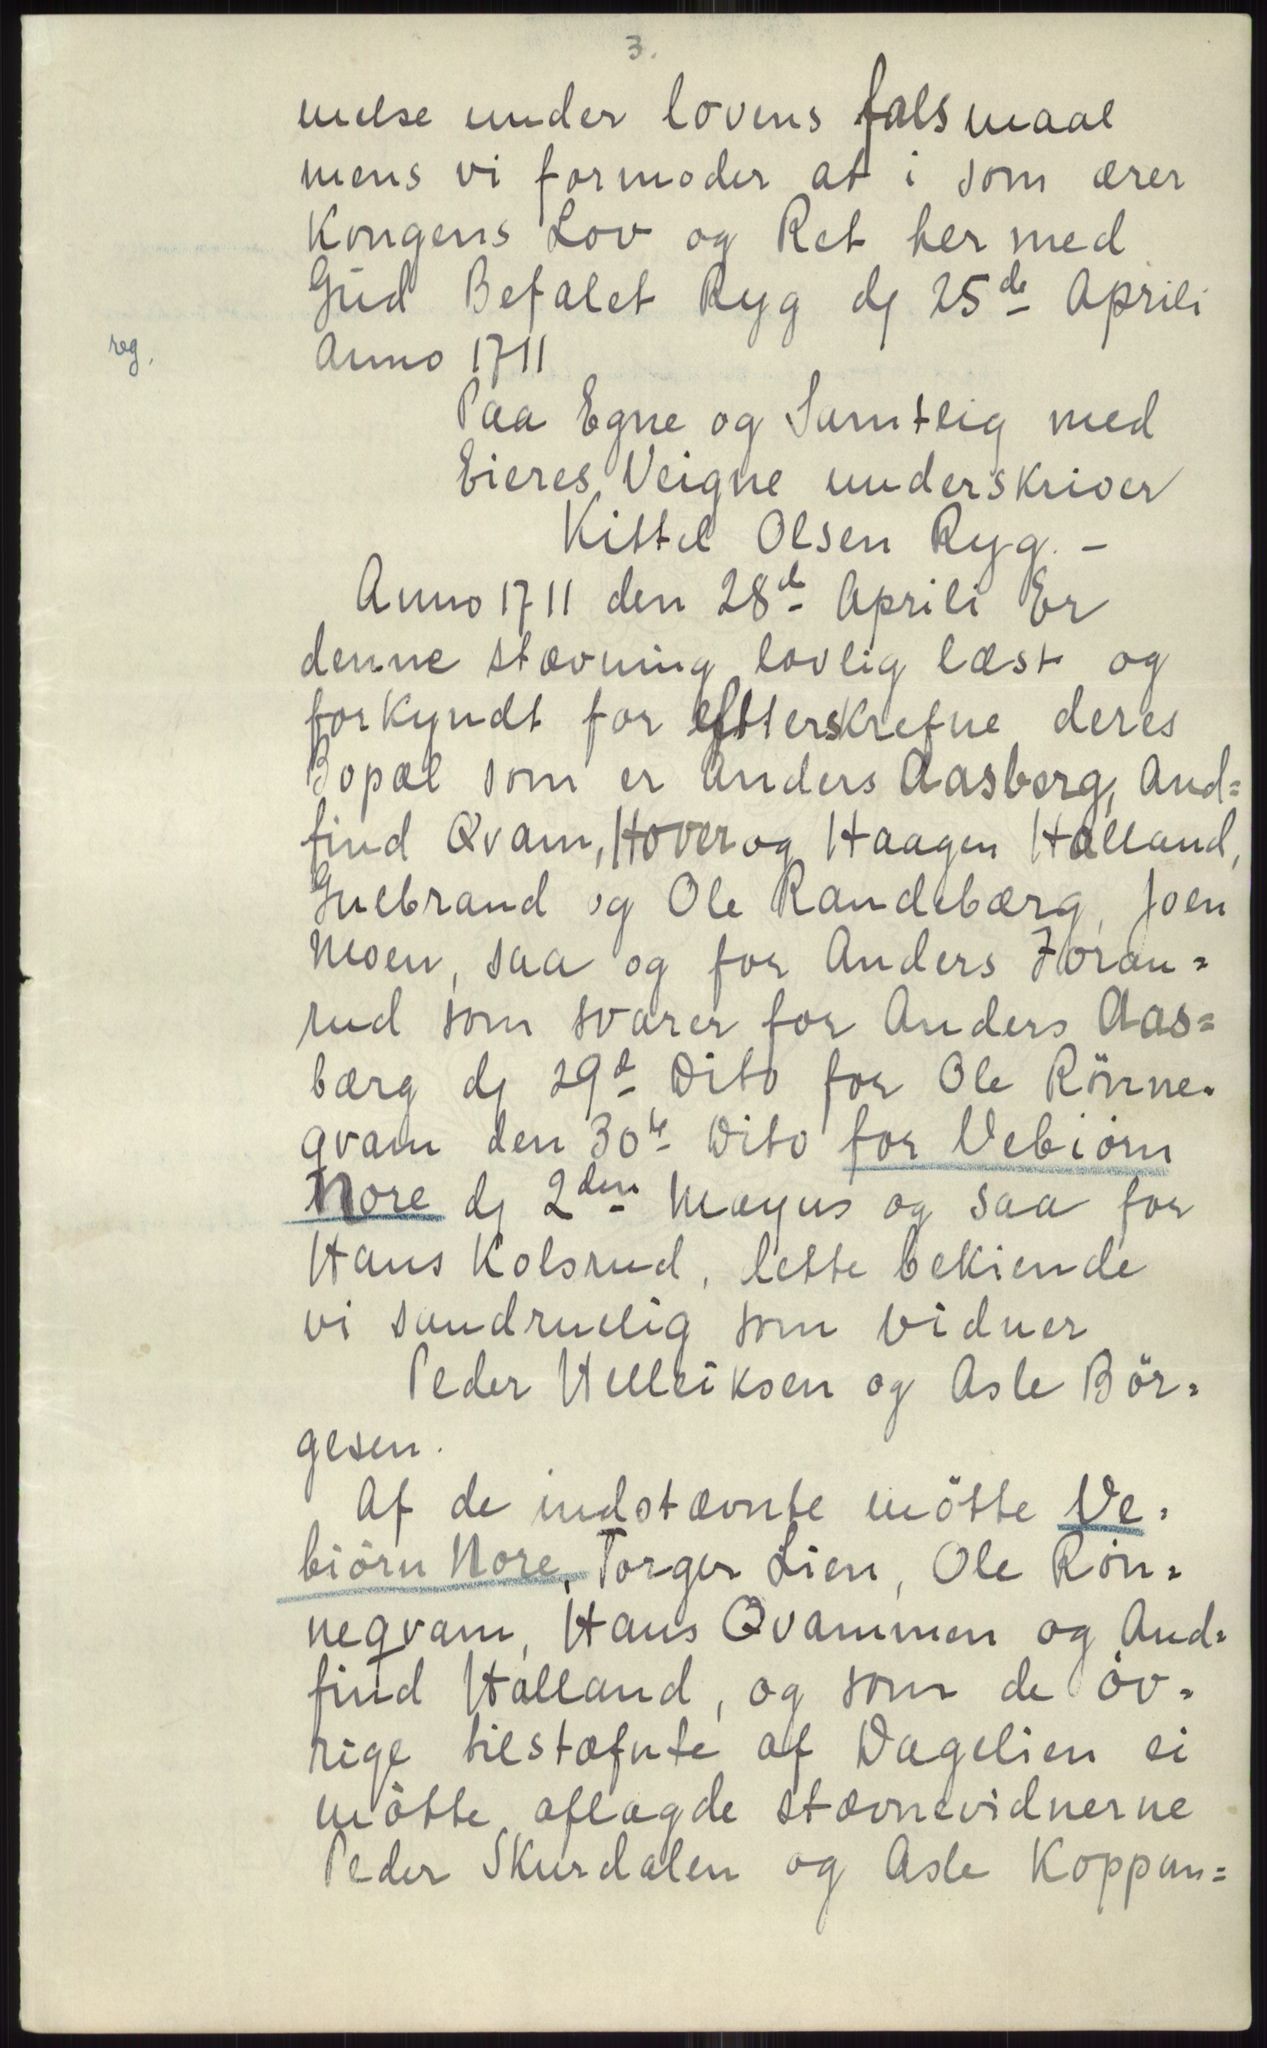 3.
melse under lovens falsmaal
mens vi formoder at i som ærer
Kongens Lov og Ret her med
Gud Befalet Ryg dj 25de Aprili
reg. Anno 1711
Paa Egne og Samtlig med
Eieres Veigne underskriver
Kittel Olsen Ryg. -
Anno 1711 den 28d Aprili Er
denne stævning lovlig læst og
forkyndt for efterskrefne deres
Bopæl som er Anders Aasberg, And=
find Qvam, Hover og Haagen Halland,
Gulbrand og Ole Randebærg, Joen
Moen, saa og for Anders Toran=
rud som svarer for Anders Aas=
bærg dj 29d Dito for Ole Rönne=
qvam den 30te Dito for Vebiörn
Nore dj 2den Mayus og saa for
Hans Kolsrud, lette bekiende
vi sandruelig som vidner
Peder Ulleiksen og Asle Bör=
gesen.
Af de indstævnte mötte Ve=
biörn Nore, Torger Lien, Ole Rön=
neqvam, Hans Qvammen og And=
find Halland, og som de öv=
rige tilstæfnte af Dagelien ei
mötte aflagde stævnevidnerne
Peder Skurdalen og Asle Koppan=